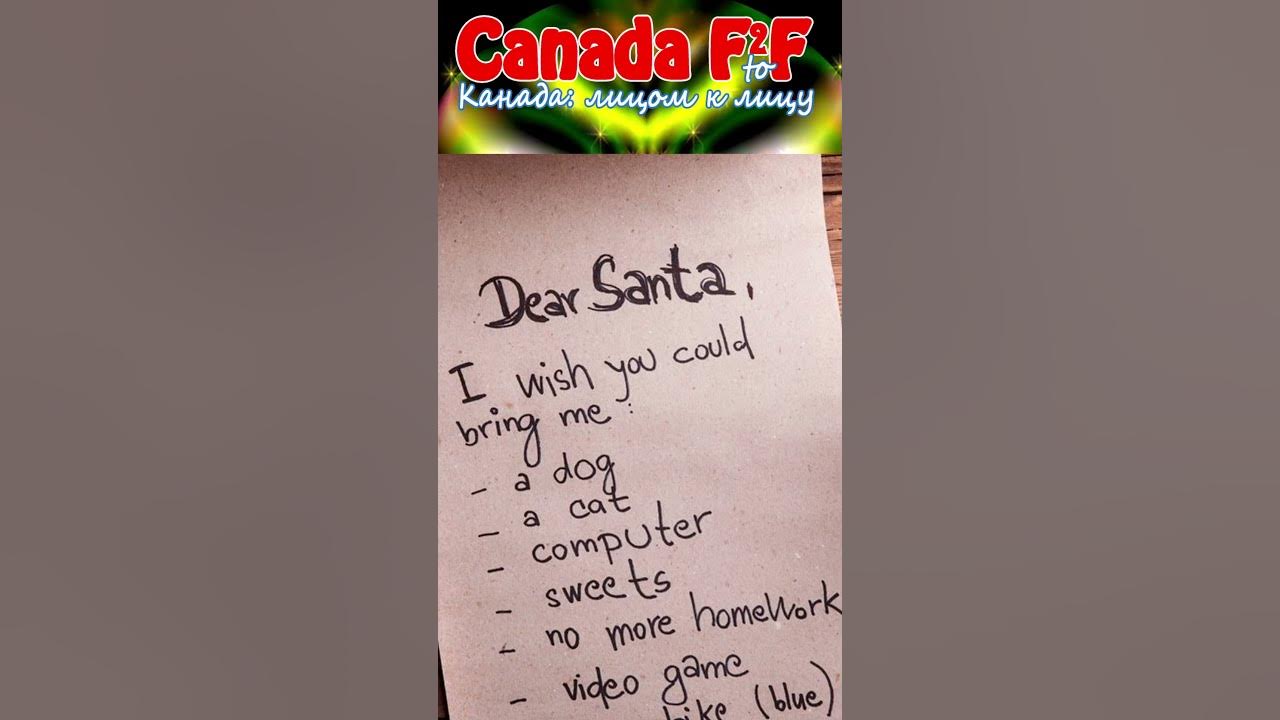 Canada F2F
to
Канада: лицом к лицу
Dear Santa,
I wish you could
bring me :
- a dog
- a cat
- computer
- sweets
- no more homework
- video game
bike (blue)